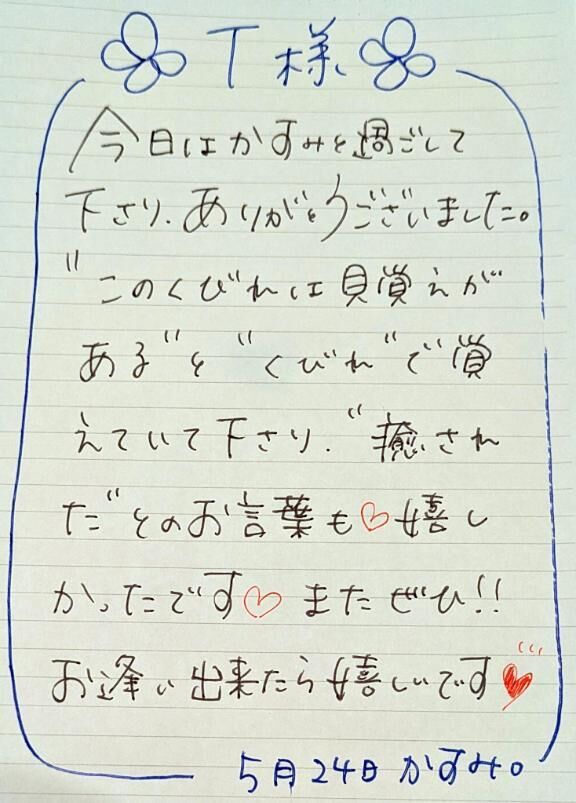 T様
今日はかすみと過ごして
下さり、ありがとうございました。
"このくびれは見覚えが
ある"と"くびれ"で覚
えていて下さり、"癒され
た"とのお言葉も♡嬉し
かったです♡またぜひ!!
お逢い出来たら嬉しいです♥
5月24日 かすみ。